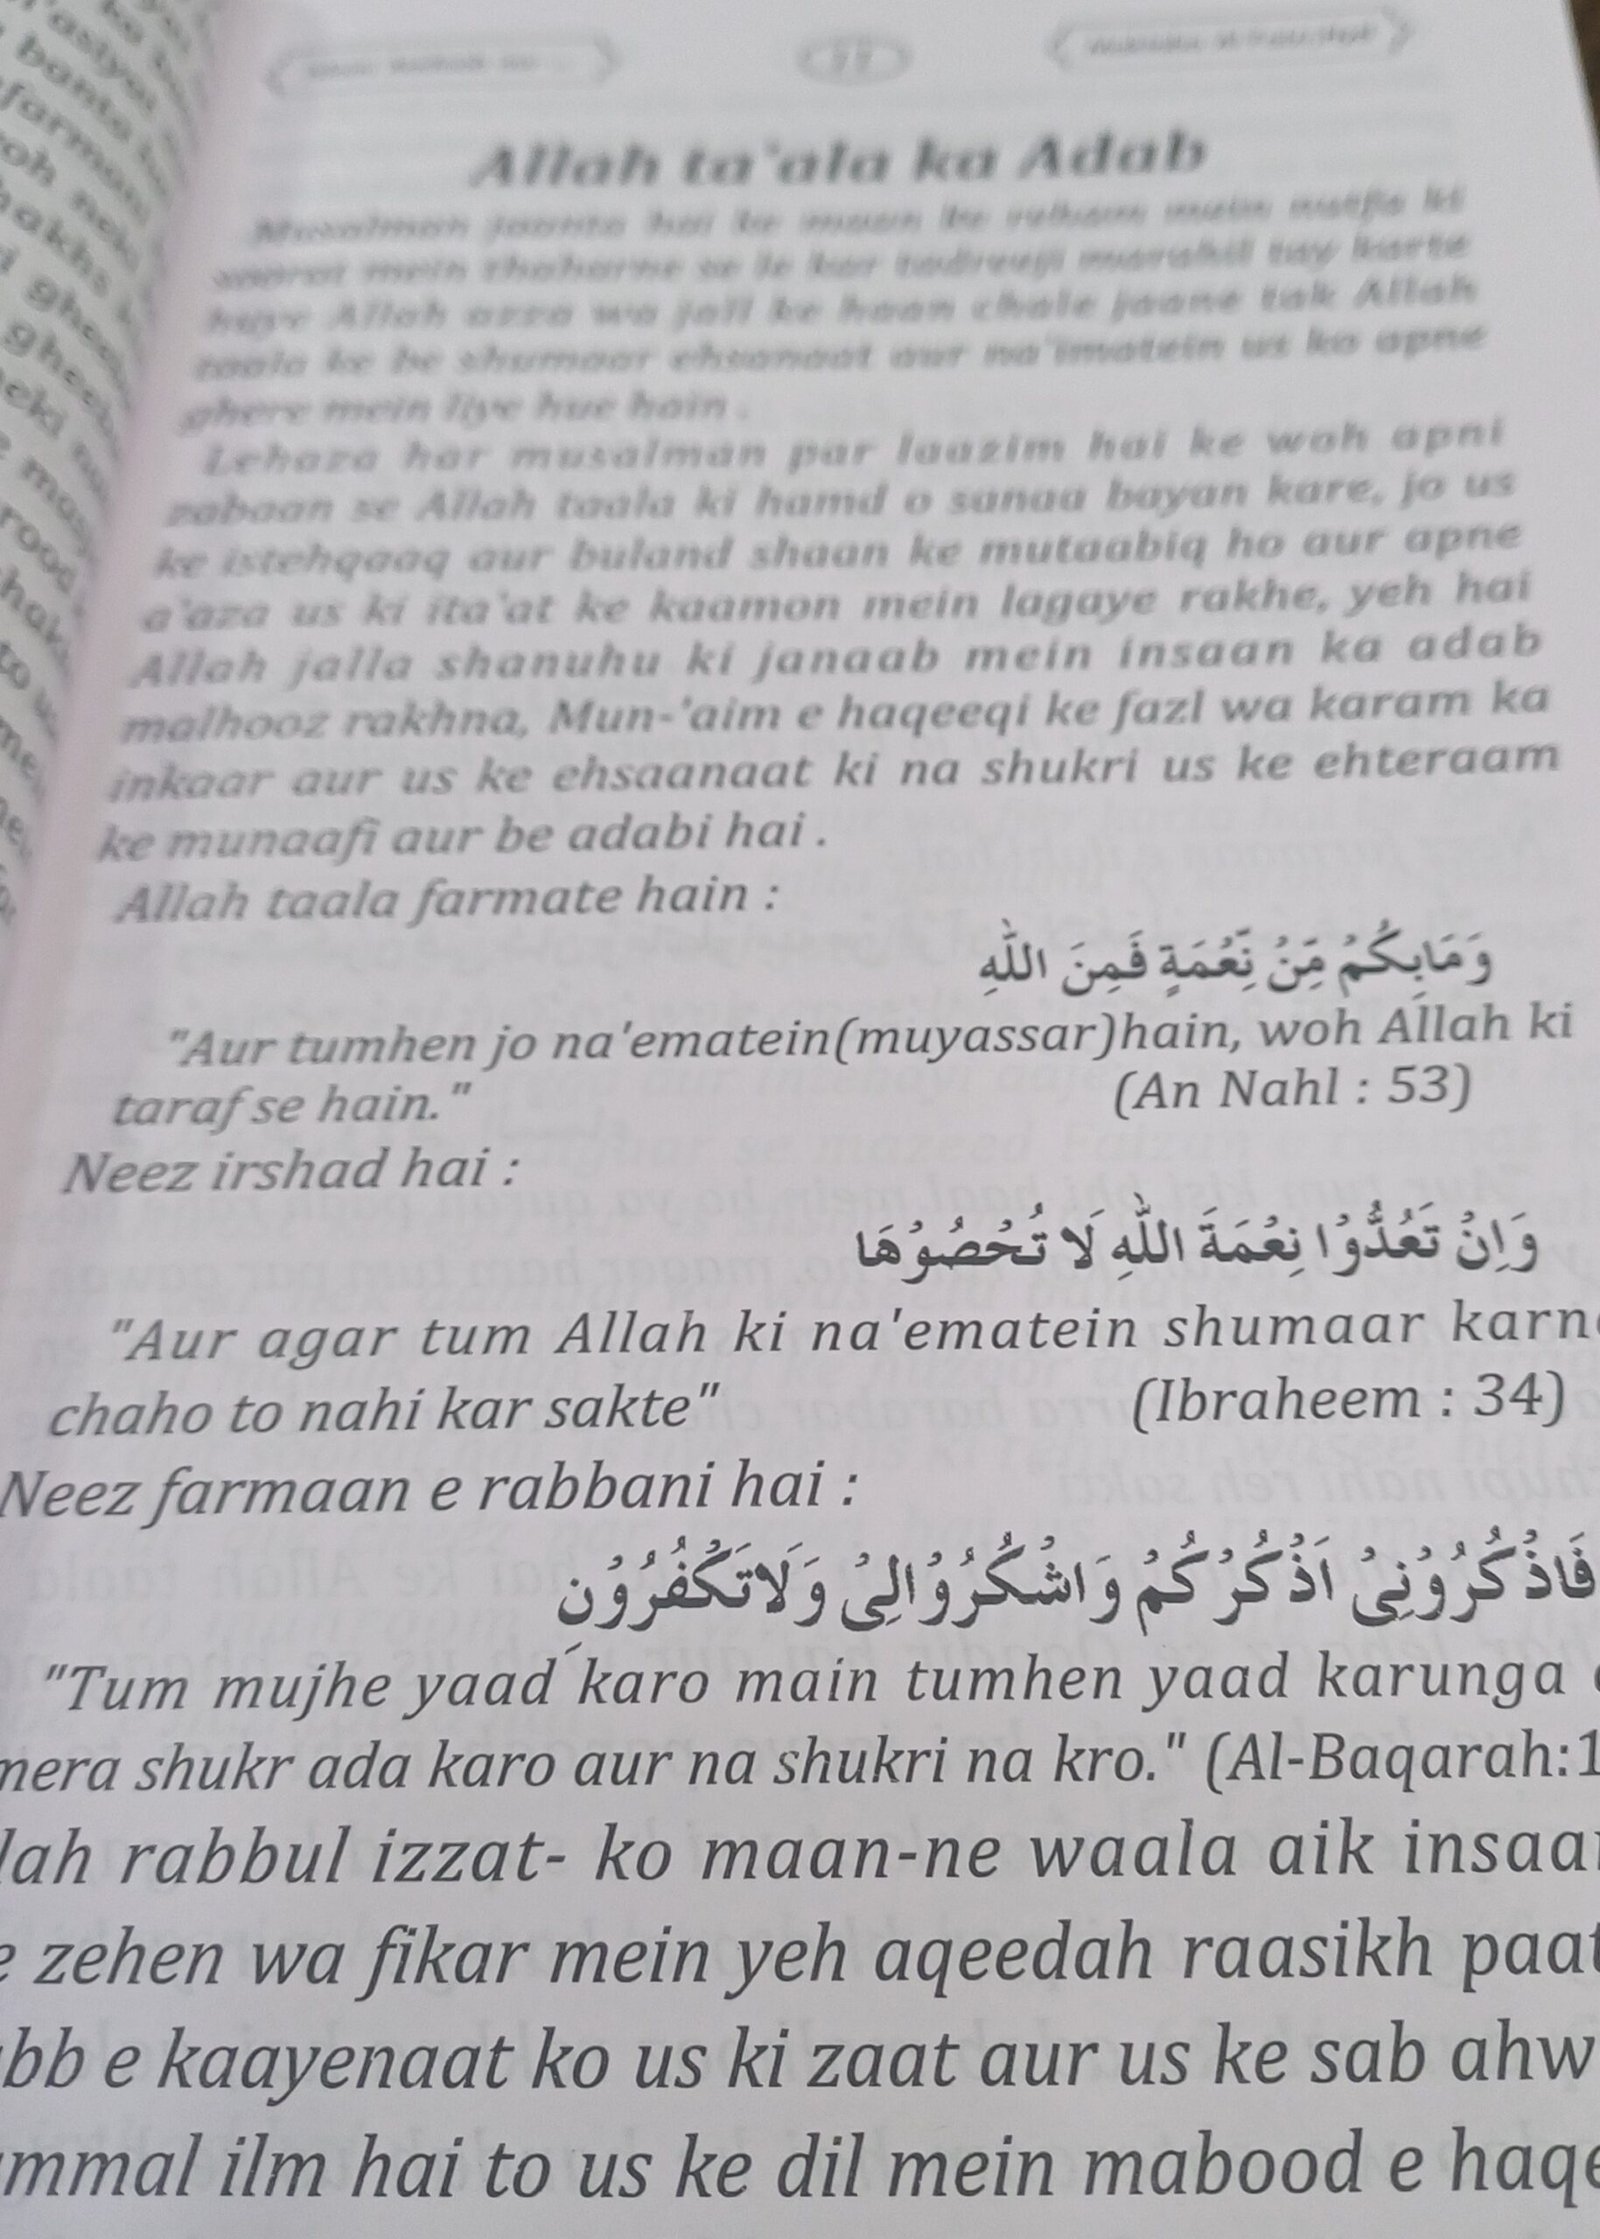 Allah ta'ala ka Adab
Musalman jaanta hai ke maan ke reham mein nutfa ki
soorat mein thaharne se le kar tadreeji marahil tay karte
huye Allah azza wa jall ke haan chale jaane tak Allah
taala ke be shumaar ehsanaat aur na'imatein us ko apne
ghere mein liye hue hain .
Lehaza har musalman par laazim hai ke woh apni
zabaan se Allah taala ki hamd o sanaa bayan kare, jo us
ke istehqaaq aur buland shaan ke mutaabiq ho aur apne
a'aza us ki ita'at ke kaamon mein lagaye rakhe, yeh hai
Allah jalla shanuhu ki janaab mein insaan ka adab
malhooz rakhna, Mun-'aim e haqeeqi ke fazl wa karam ka
inkaar aur us ke ehsaanaat ki na shukri us ke ehteraam
ke munaafi aur be adabi hai .
Allah taala farmate hain :
وَمَابِكُمْ مِّنْ نِّعْمَةٍ فَمِنَ اللّٰهِ
"Aur tumhen jo na'ematein(muyassar)hain, woh Allah ki
taraf se hain." (An Nahl : 53)
Neez irshad hai :
وَاِنْ تَعُدُّوْا نِعْمَةَ اللّٰهِ لَا تُحْصُوْهَا
"Aur agar tum Allah ki na'ematein shumaar karn
chaho to nahi kar sakte" (Ibraheem : 34)
Neez farmaan e rabbani hai :
فَاذْكُرُوْنِىْ اَذْكُرْكُمْ وَاشْكُرُوْالِىْ وَلَاتَكْفُرُوْنِ
"Tum mujhe yaad karo main tumhen yaad karunga
mera shukr ada karo aur na shukri na kro." (Al-Baqarah:1
lah rabbul izzat- ko maan-ne waala aik insaa
e zehen wa fikar mein yeh aqeedah raasikh paat
bb e kaayenaat ko us ki zaat aur us ke sab ahw
mmal ilm hai to us ke dil mein mabood e haqe